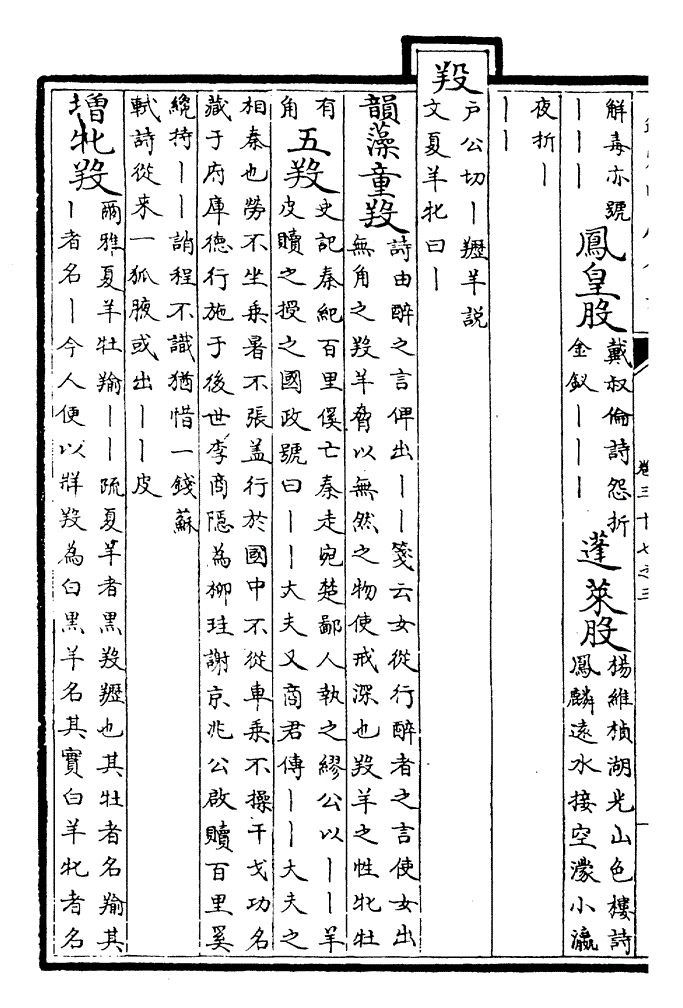 解毒亦號
｜｜｜
鳳皇股
戴叔倫詩怨折
金釵｜｜｜
蓬萊股
楊維楨湖光山色樓詩
鳳麟遠水接空濛小瀛
夜折｜
｜｜
羖
戶公切｜䍽羊説
文夏羊牝曰｜
韻藻童羖
詩由醉之言俾出｜｜箋云女從行醉者之言使女出
無角之羖羊脅以無然之物使戒深也羖羊之性牝牡
有
角
五羖
史記秦紀百里傒亡秦走宛楚鄙人執之繆公以｜｜羊
皮贖之授之國政號曰｜｜大夫又商君傳｜｜大夫之
相秦也勞不坐乘暑不張盖行於國中不從車乘不操干戈功名
藏于府庫德行施于後世李商隱為柳珪謝京兆公啟贖百里奚
纔持｜｜誚程不識猶惜一錢蘇
軾詩從來一狐腋或出｜｜皮
增牝羖
爾雅夏羊牡羭｜｜疏夏羊者黑羖䍽也其牡者名羭其
｜者名｜今人便以牂羖為白黑羊名其實白羊牝者名
卷三十七之三